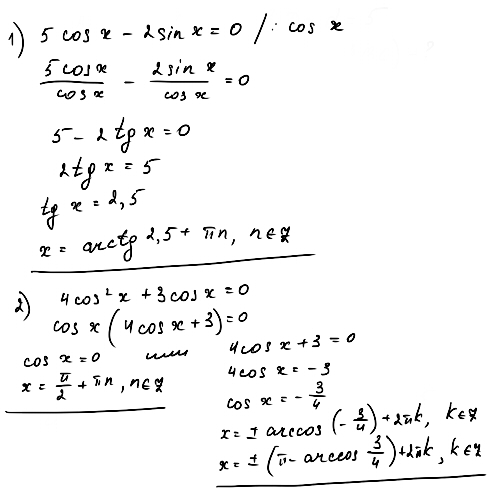 1) 5 cos x - 2 sin x = 0 /: cos x
5 cos x / cos x - 2 sin x / cos x = 0
5 - 2 tg x = 0
2 tg x = 5
tg x = 2,5
x = arctg 2,5 + πn, n ∈ Z
2) 4 cos² x + 3 cos x = 0
cos x (4 cos x + 3) = 0
cos x = 0 или 4 cos x + 3 = 0
x = π/2 + πn, n ∈ Z
4 cos x = -3
cos x = -3/4
x = ± arccos (-3/4) + 2πk, k ∈ Z
x = ± (π - arccos 3/4) + 2πk, k ∈ Z